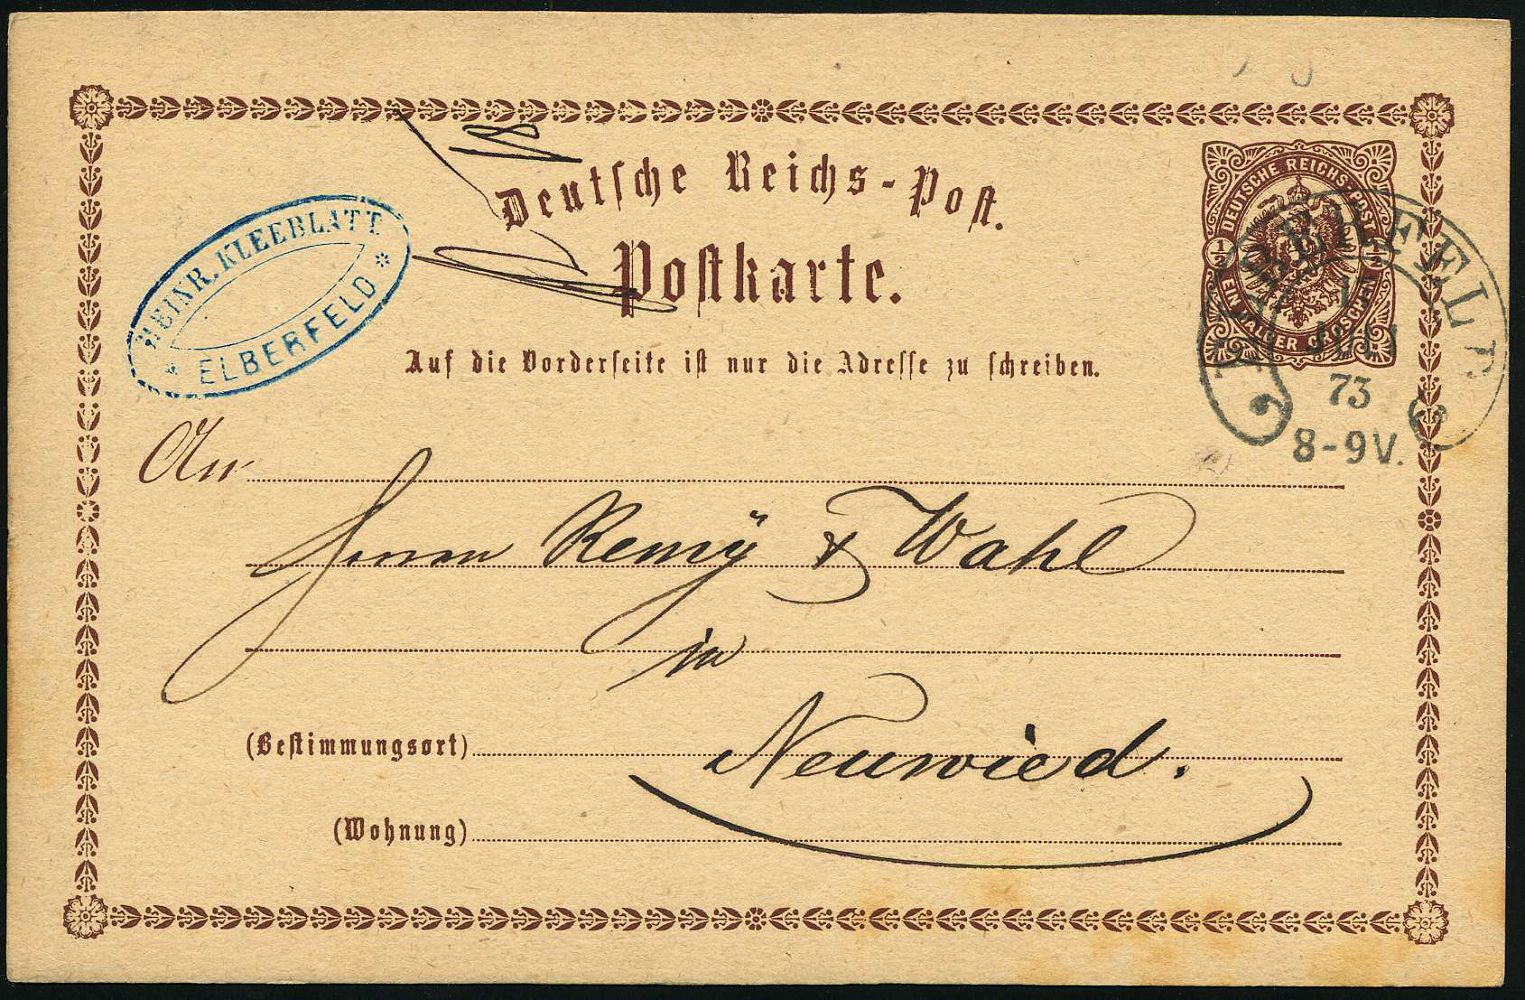 Deutsche Reichs-Post.
Postkarte.
HEINR. KLEEBLATT
* ELBERFELD *
DEUTSCHE REICHS-POST
1/2 1/2
EIN HALBER GROSCHEN
ELBERFELD
73
8-9V.
Auf die Vorderseite ist nur die Adresse zu schreiben.
An
Herrn Remÿ & Wahl
in
(Bestimmungsort) Neuwied.
(Wohnung)